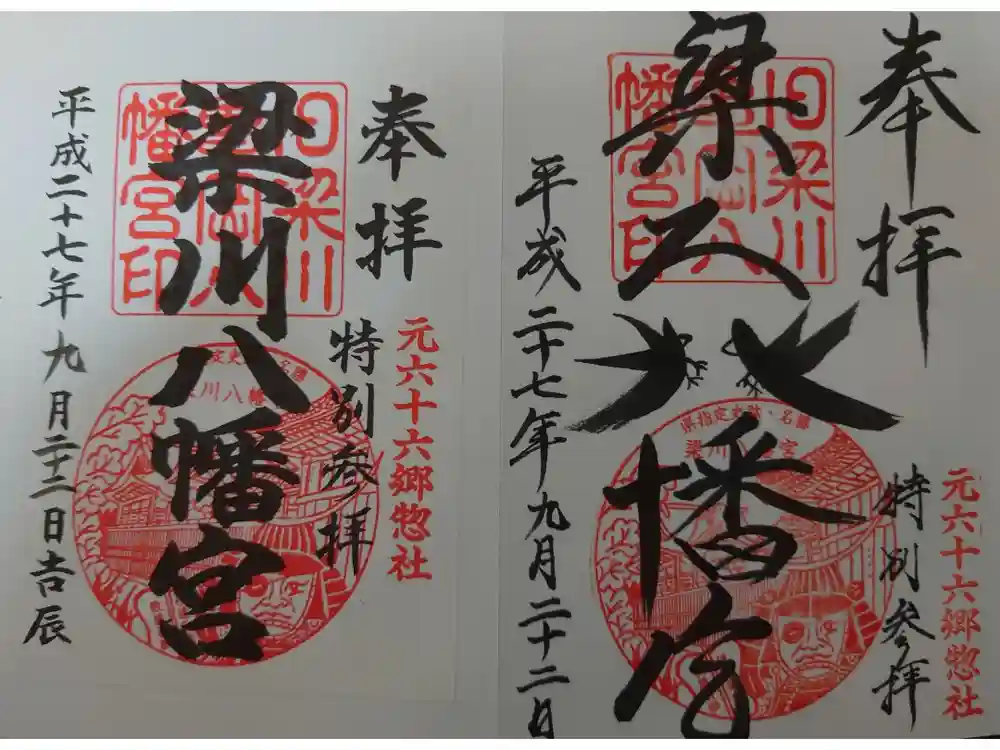 奉拝
元六十六郷惣社
特別参拝
旧梁川
亀岡八
幡宮印
梁川八幡宮
川八幡
平成二十七年九月二十二日吉辰
奉拝
元六十六郷惣社
特別参拝
旧梁川
亀岡八
幡宮印
県指定史跡・名勝
梁川
宮
梁川八幡宮
平成二十七年九月二十二日